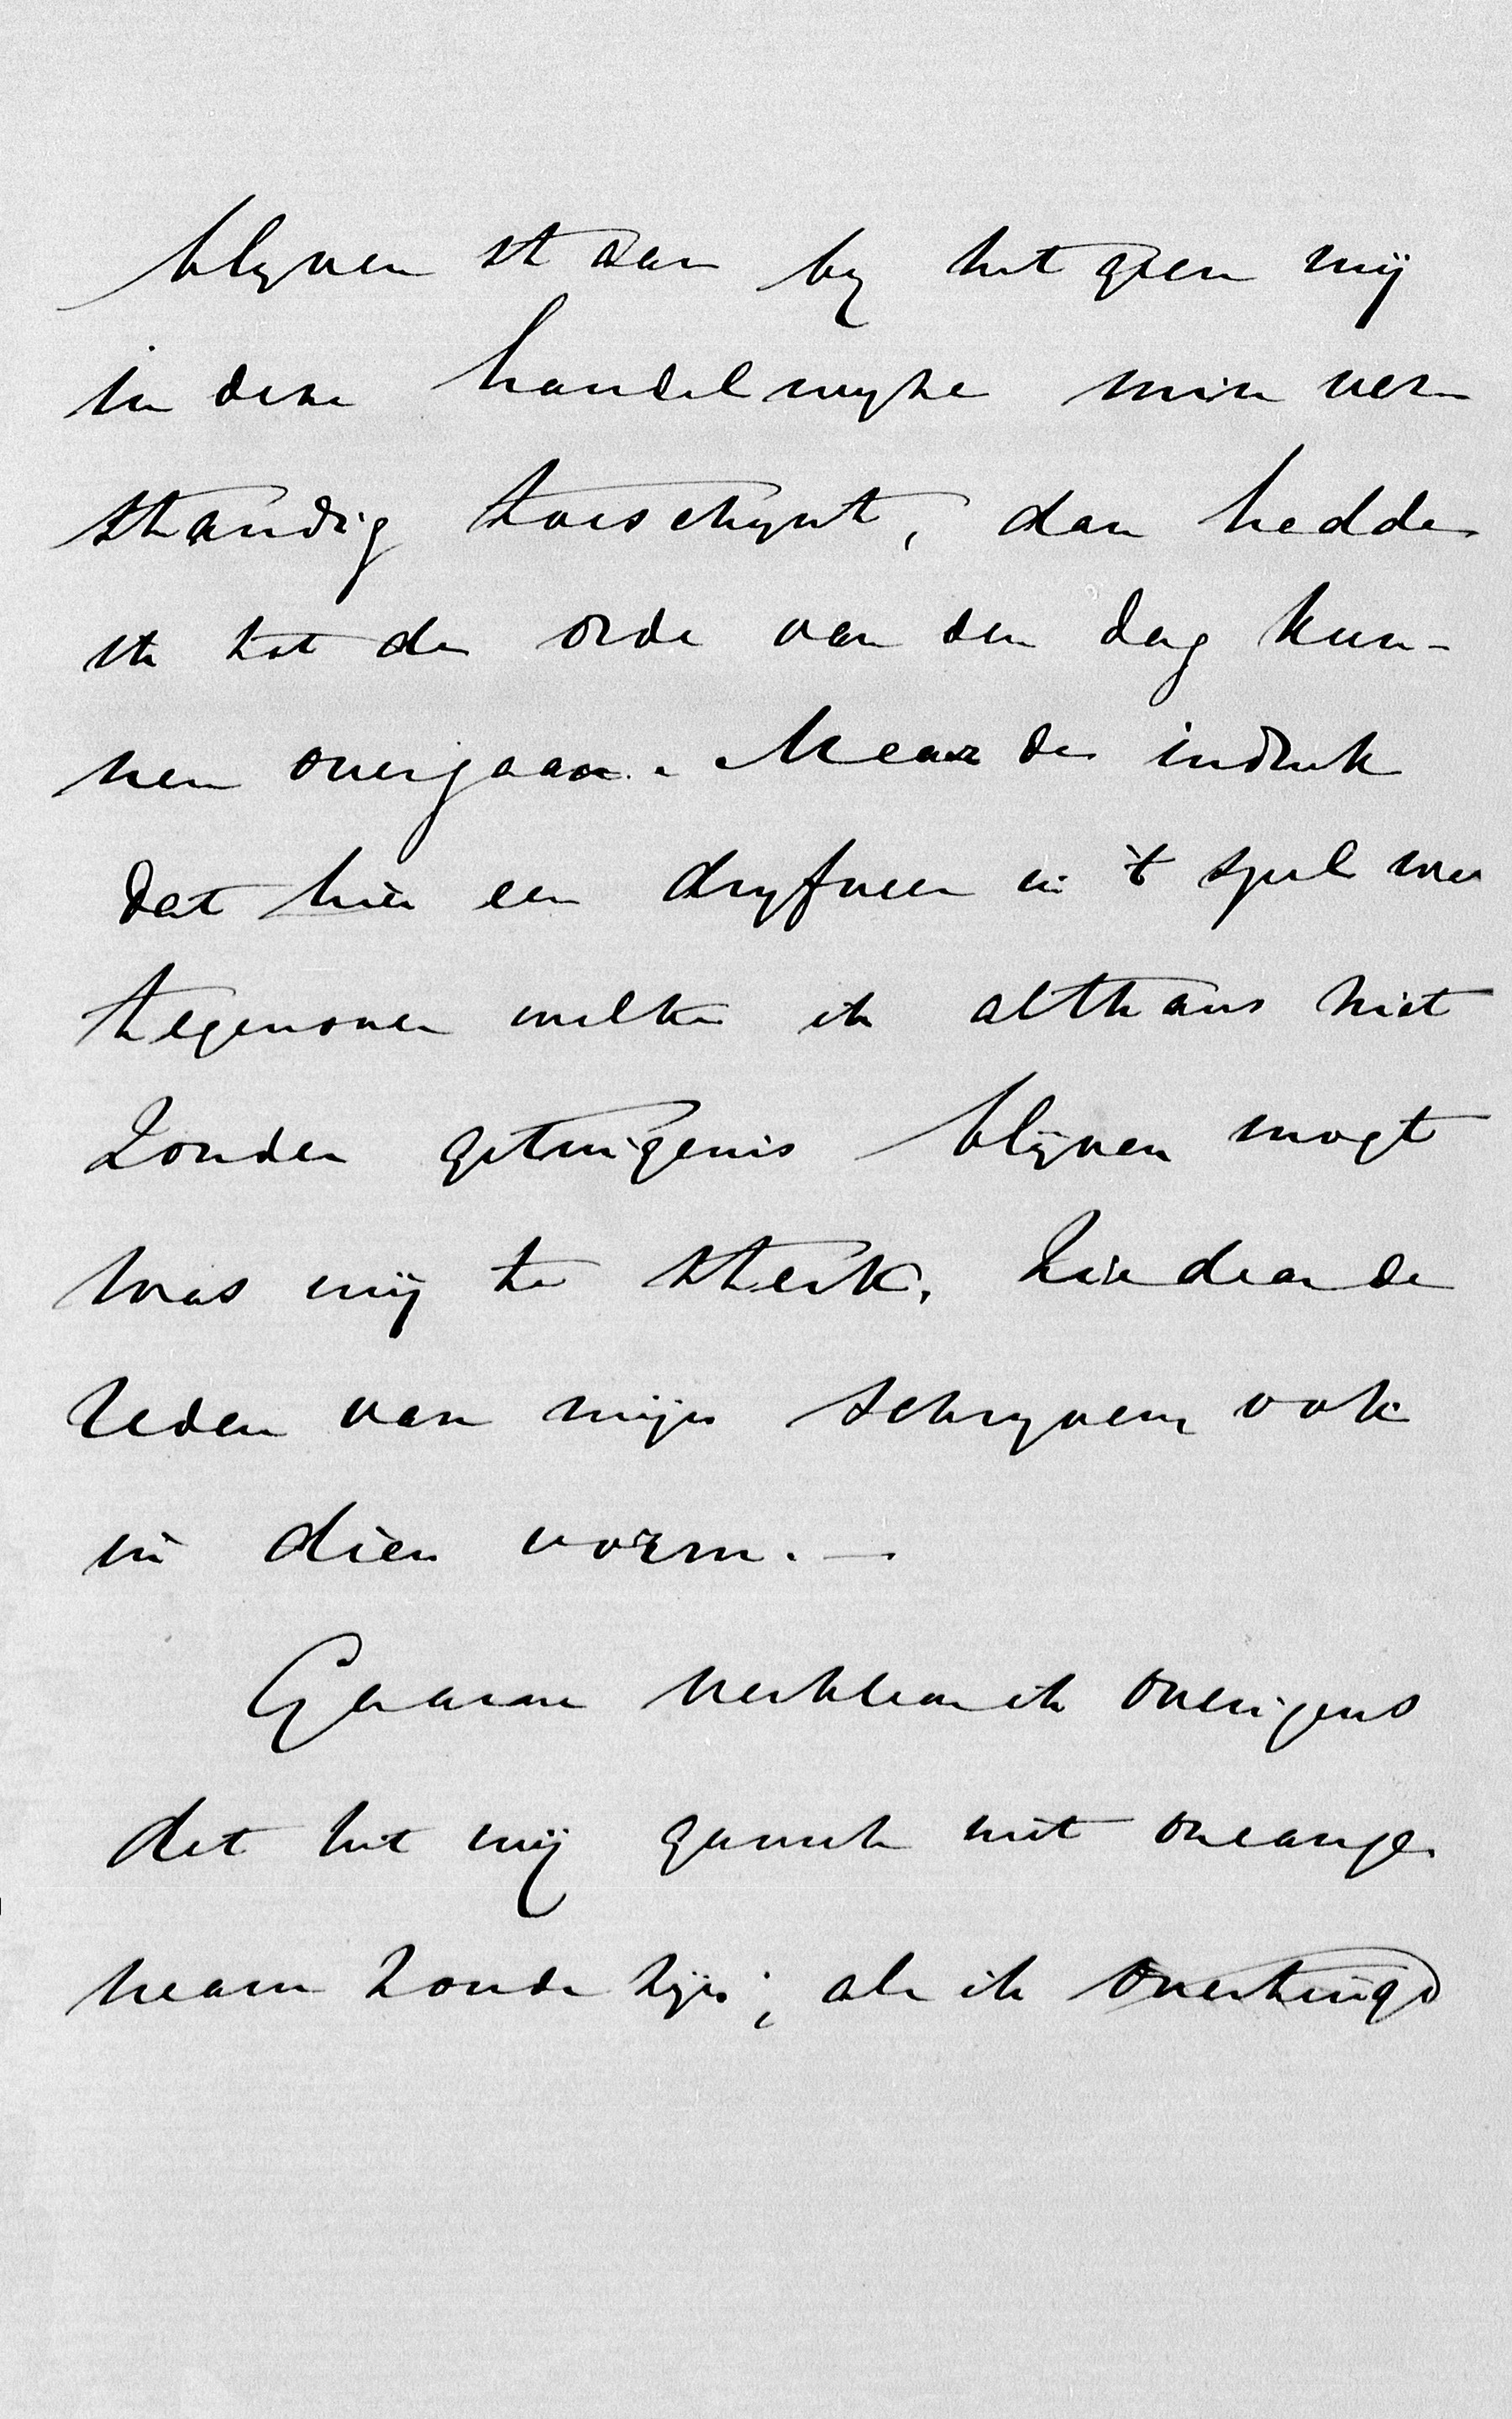 blyven staan by hetgeen mij
in deze handelwyze min ver-
standig toeschynt, dan hadde
ik tot de orde van den dag kun-
nen overgaan. Maar de indruk
dat hier een dryfveer in 't spel was
tegenover welke ik althans niet
zonder getuigenis blijven mogt
was mij te sterk. Ziedaar de
reden van mijn schryven ook
in dien vorm. —
Gaarne verklaar ik overigens
dat het mij gansch niet onaange-
naam zoude zijn, als ik overtuigd